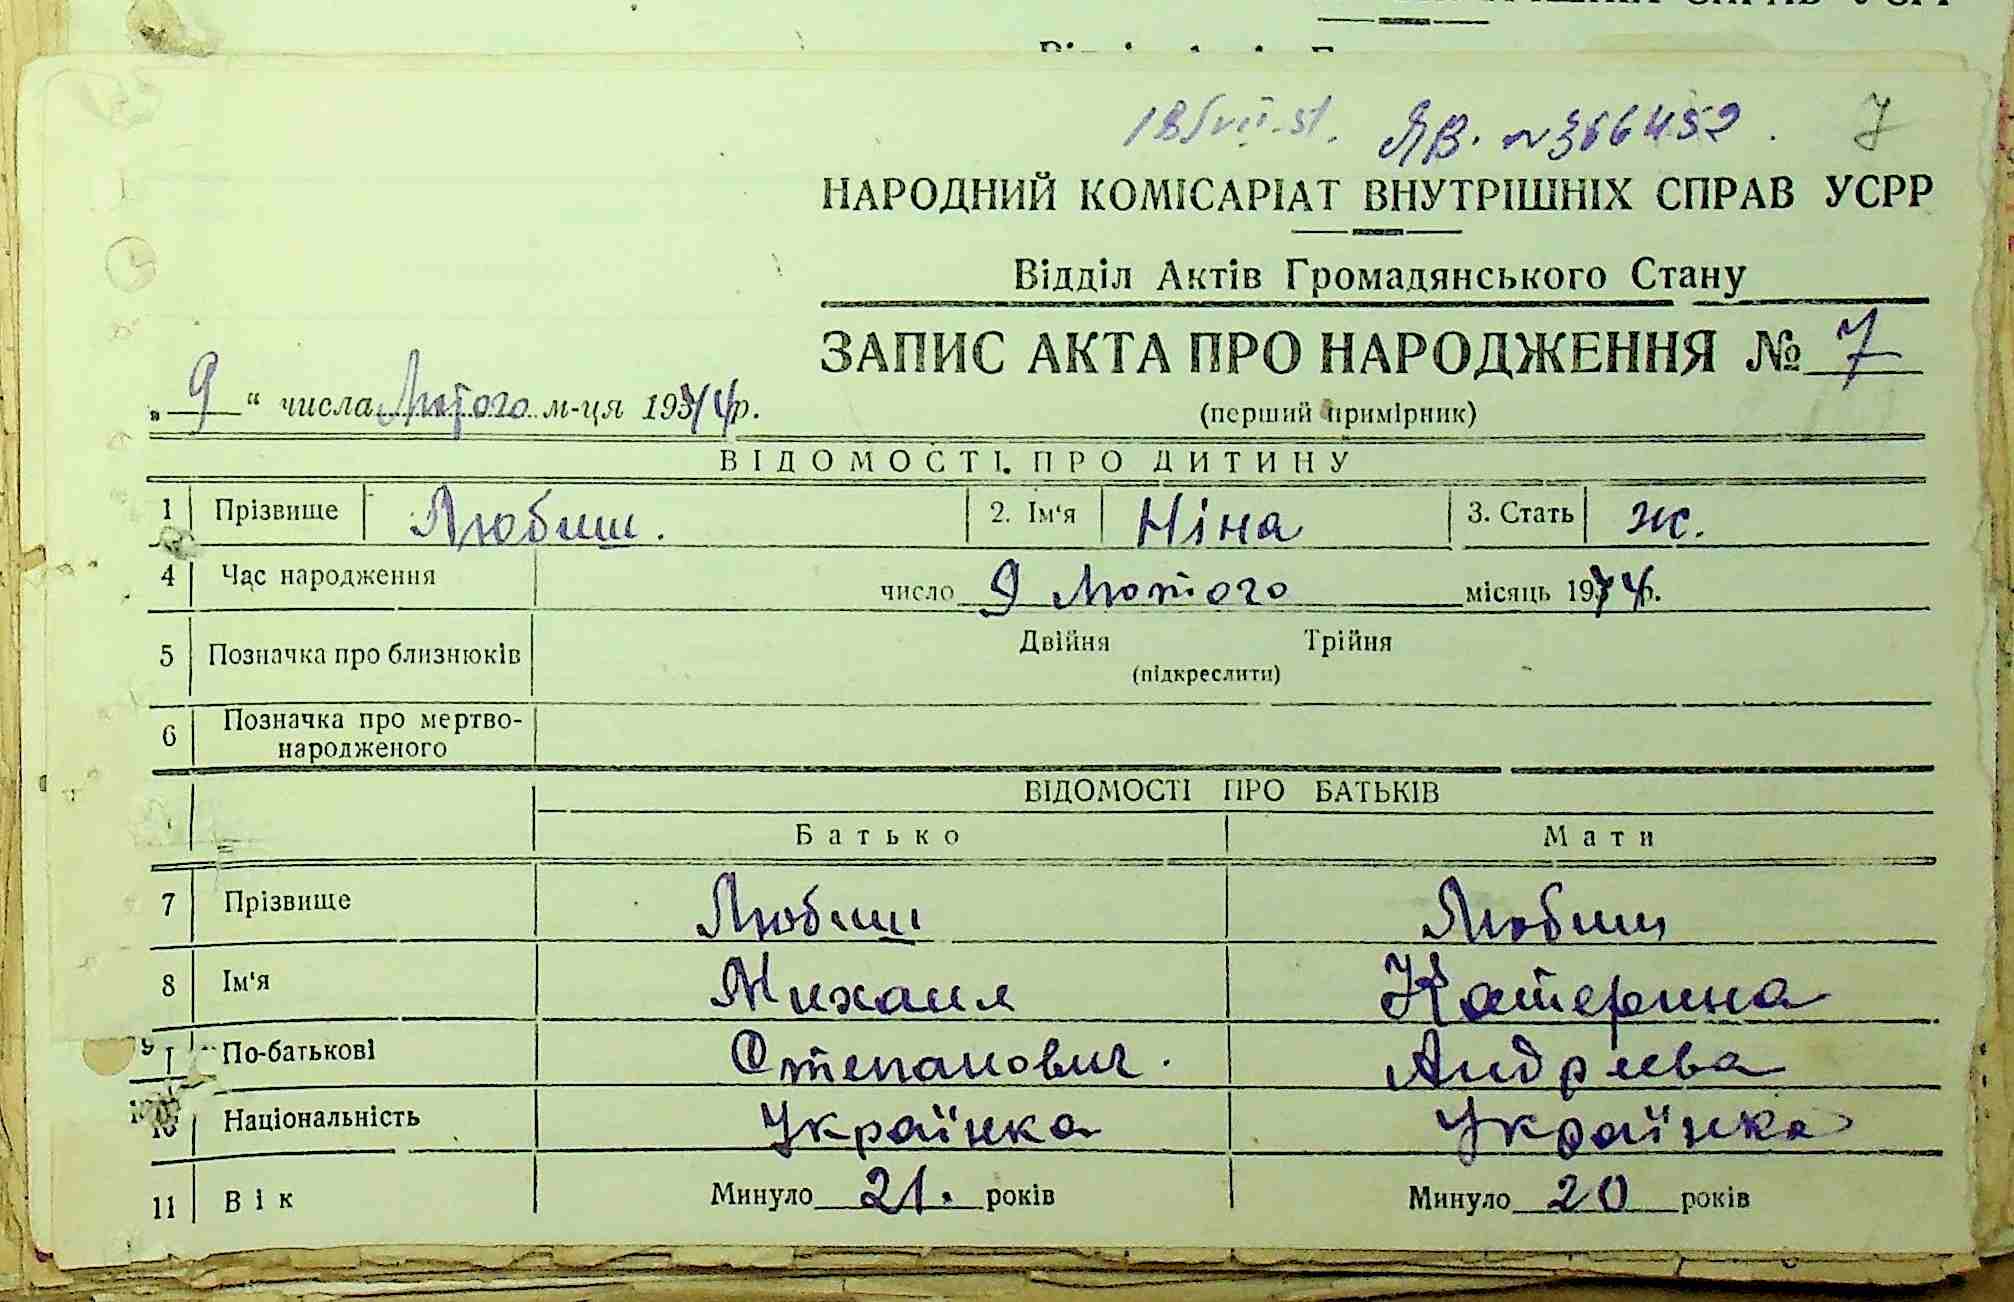 ЯВ. №366452. 7
НАРОДНИЙ КОМІСАРІАТ ВНУТРІШНІХ СПРАВ УСРР
Відділ Актів Громадянського Стану
ЗАПИС АКТА ПРО НАРОДЖЕННЯ № 7
„ 9 “ числа Лютого м-ця 1944р.
(перший примірник)
ВІДОМОСТІ ПРО ДИТИНУ
1 Прізвище Любиш. 2. Ім'я Ніна 3. Стать ж.
4 Час народження число 9 Лютого місяць 1944р.
5 Позначка про близнюків Двійня Трійня
(підкреслити)
6 Позначка про мертво-
народженого
ВІДОМОСТІ ПРО БАТЬКІВ
Батько Мати
7 Прізвище Любиш Любиш
8 Ім'я Михаил Катерина
9 По-батькові Степанович. Андреева
10 Національність Українка Українка
11 Вік Минуло 21. років Минуло 20 років